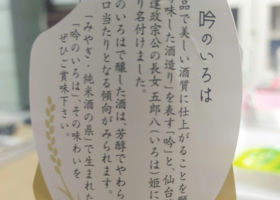 吟のいろは
品で美しい酒質に仕上がることを願
吟味した酒造り」を表す「吟」と、仙台
達政宗公の長女五郎八(いろは)姫に
り名付けました。
のいろはで醸した酒は、芳醇でやわら
口当たりとなる傾向がみられます。
「みやぎ・純米酒の県」で生まれた
「吟のいろは」、その味わいを
ぜひご賞味下さい。